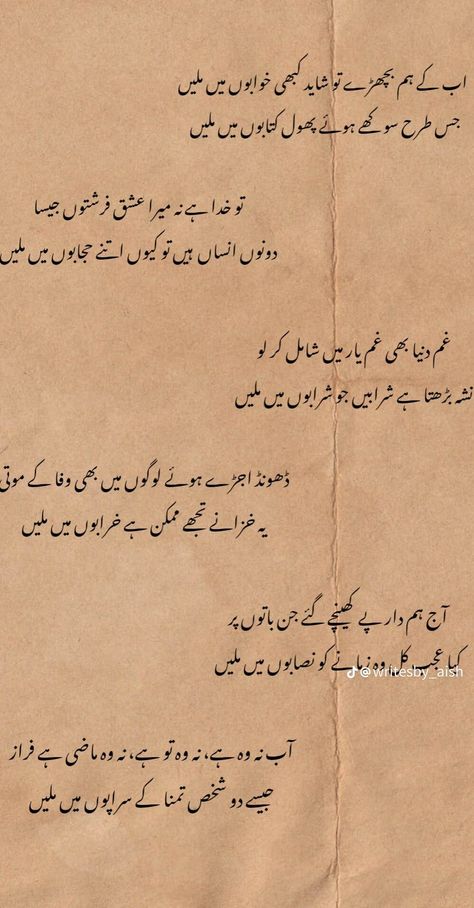 اب کے ہم بچھڑے تو شاید کبھی خوابوں میں ملیں
جس طرح سوکھے ہوئے پھول کتابوں میں ملیں
تو خدا ہے نہ میرا عشق فرشتوں جیسا
دونوں انساں ہیں تو کیوں اتنے حجابوں میں ملیں
غم دنیا بھی غم یار میں شامل کر لو
نشہ بڑھتا ہے شرابیں جو شرابوں میں ملیں
ڈھونڈ اجڑے ہوئے لوگوں میں بھی وفا کے موتی
یہ خزانے تجھے ممکن ہے خرابوں میں ملیں
آج ہم دار پے کھینچے گئے جن باتوں پر
کیا عجب کل وہ زمانے کو نصابوں میں ملیں
@writesby_aish
آب نہ وہ ہے، نہ وہ تو ہے، نہ وہ ماضی ہے فراز
جیسے دو شخص تمنا کے سرابوں میں ملیں